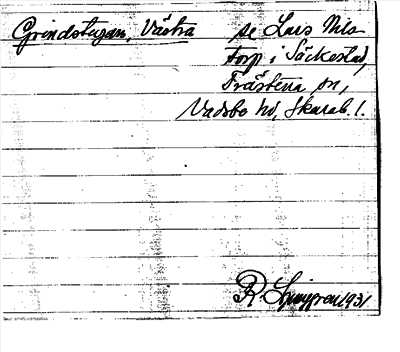 Grindstugan, Västra se Lars Nils-
torp i Säckestad,
Trästena sn,
Vadsbo hd, Skarab. l.
R. Ljunggren 1931